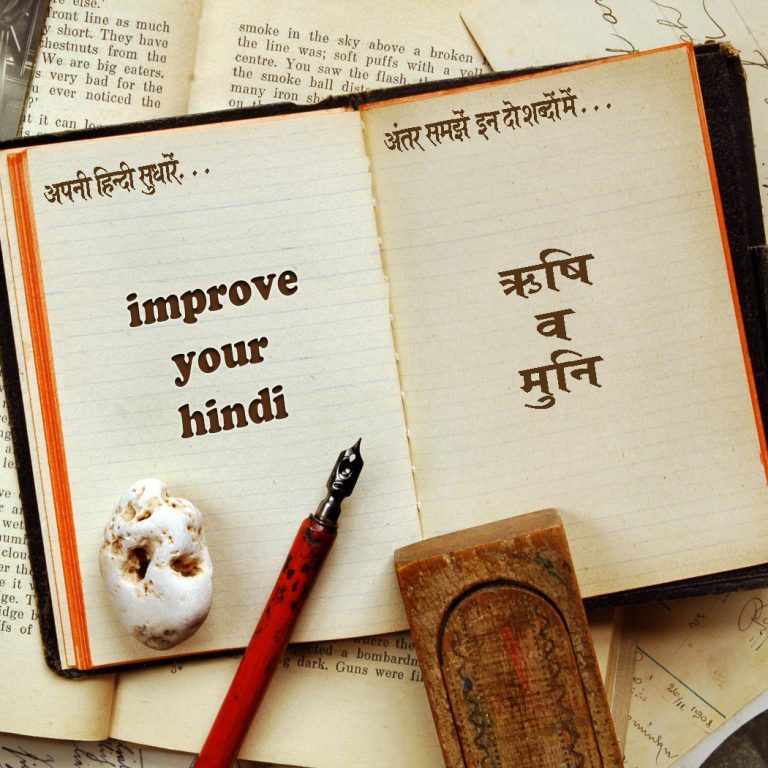 else.'
front line as much
short. They have
chestnuts from the
We are big eaters.
very bad for the
ever noticed the
?'
it can
smoke in the sky above a broken
the line was; soft puffs with a
centre. You saw the flash,
the smoke ball
many iron
on
अपनी हिन्दी सुधारें...
improve
your
hindi
अंतर समझें इन दो शब्दों में...
ऋषि
व
मुनि
where the
a
dark. Guns were